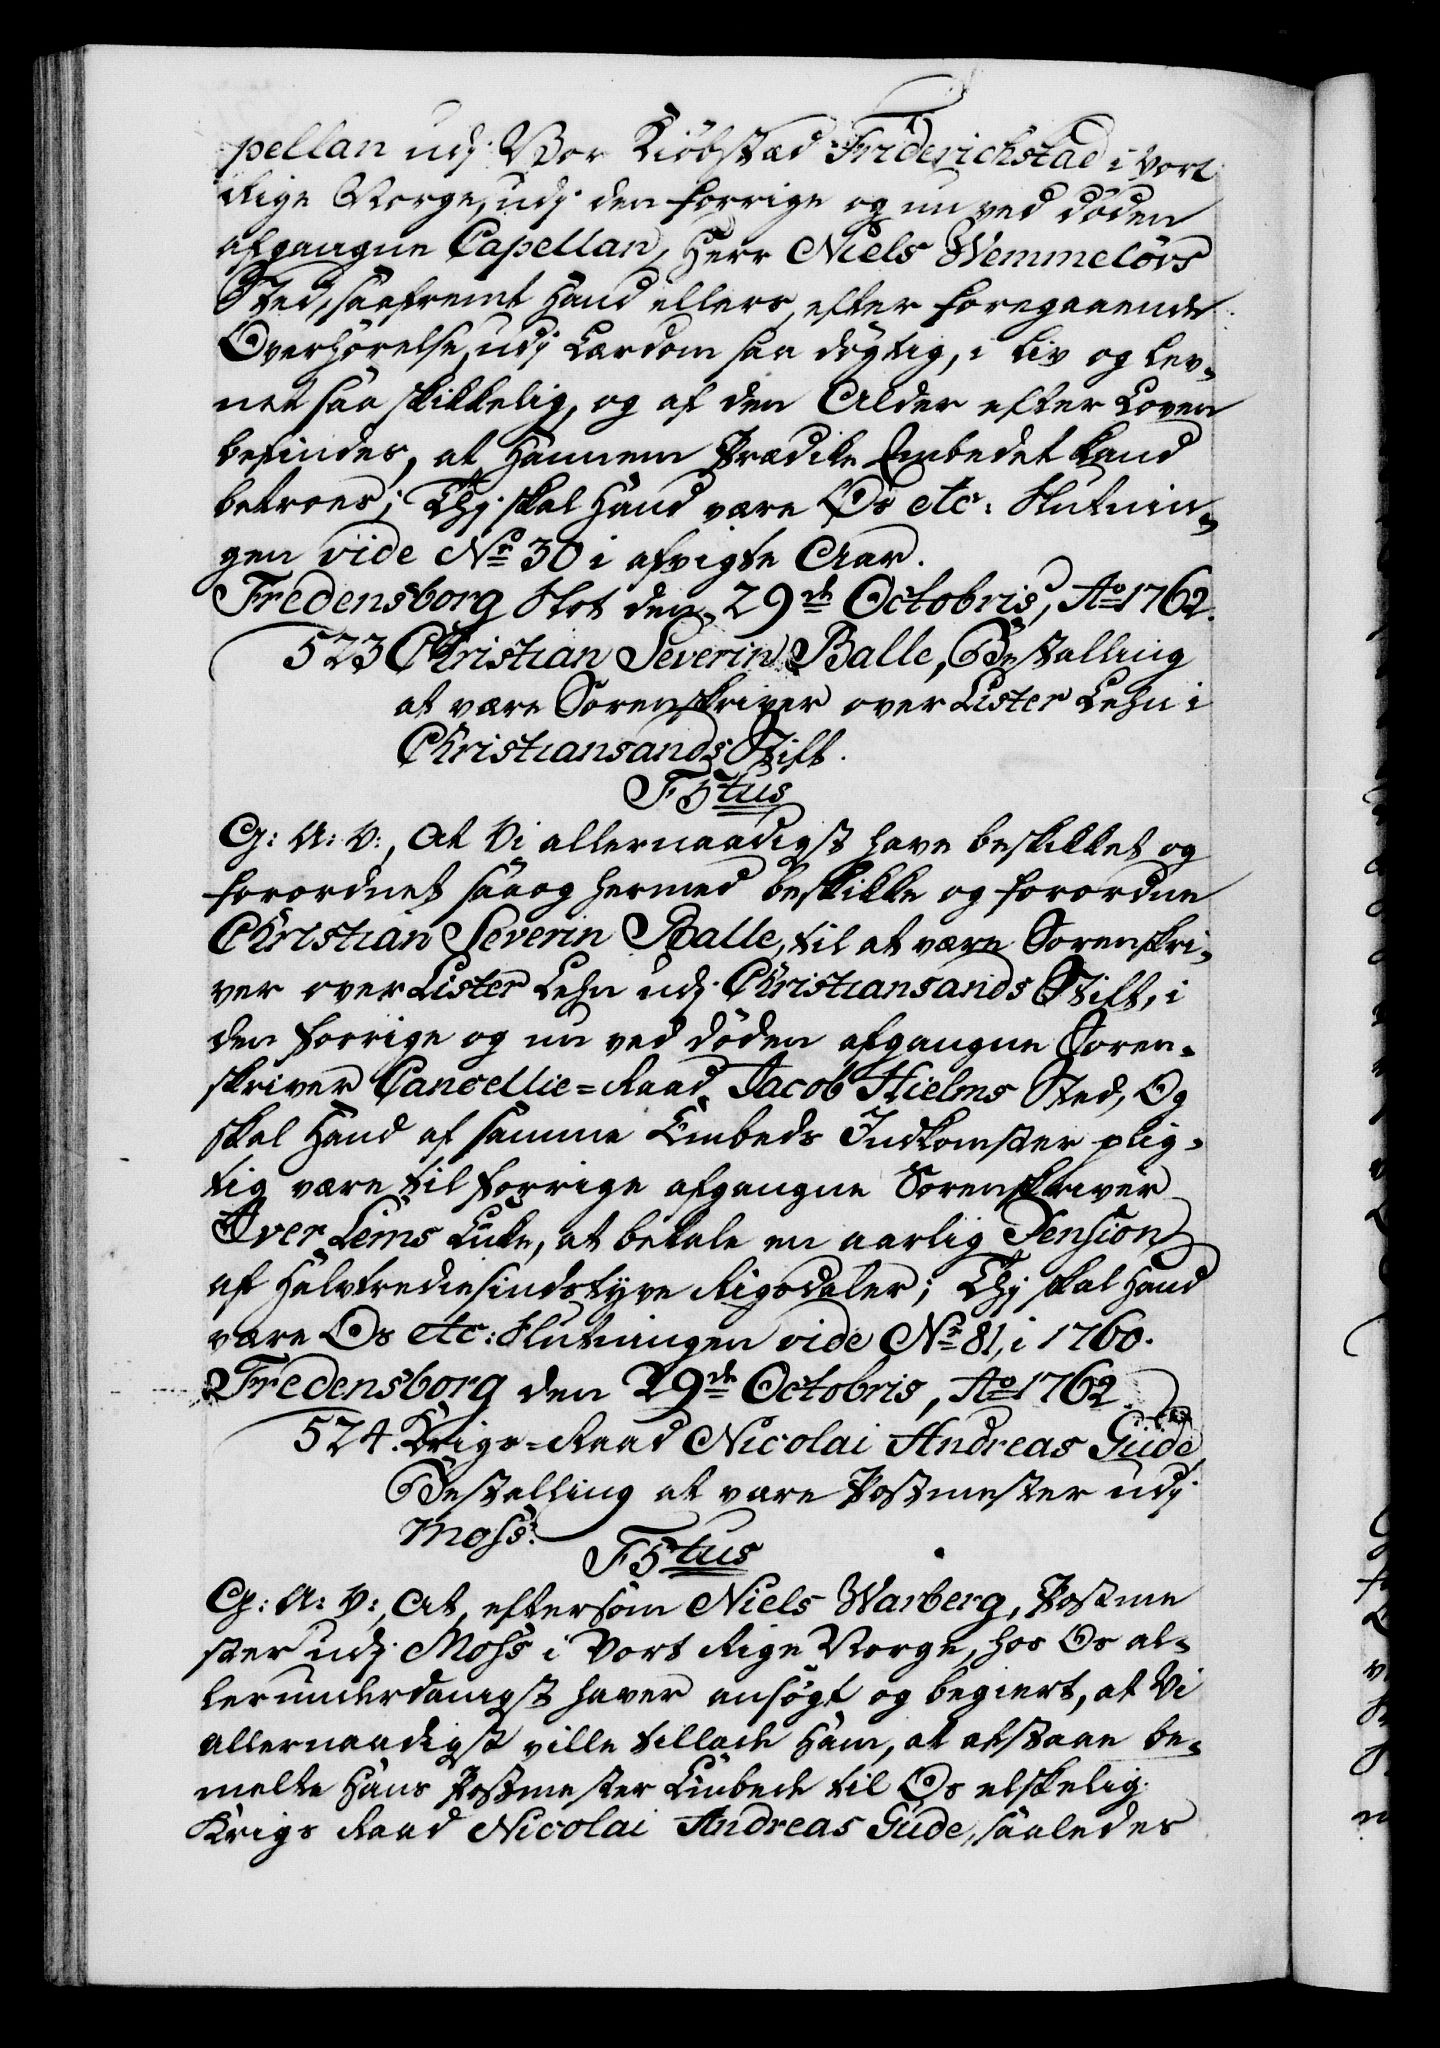 pellan udj Vor Kiöbstæd Friderichstad i Vort
Rige Norge, udj den forrige og nu ved döden
afgangne Capellan, Herr Niels Wemmelövs
Sted, saafremt Hand ellers, efter foregaaende
Overhörelse, udj Lærdom saa dögtig, i Liv og Lev-
net saa skikkelig, og af den Alder efter Loven
befindes, at Hannem Prædike Embedet kand
betroes; Thj skal Hand være Os etc: Slutnin-
gen vide No. 30 i afvigte Aar.
Fredensborg Slot den 29de Octobris, Ao 1762.
523 Christian Severin Balle, Bestalling
at være Sorenskriver over Lister Lehn i
Christiansands Stift.
F5tus
G: A: V:, At Vi allernaadigst have beskikket og
forordnet saa og hermed beskikke og forordne
Christian Severin Balle, til at være Sorenskri-
ver over Lister Lehn udj Christiansands Stift, i
den forrige og nu ved döden afgangne Soren-
skriver Cancellie-Raad Jacob Hielms Sted, Og
skal Hand af samme Embeds Indkomster plig-
tig være til forrige afgangne Sorenskriver
Iver Lems Enke, at betale en aarlig Pension
af Halvtrediesindstyve Rigsdaler; Thj skal Hand
være Os etc: Slutningen vide No. 81, i 1760.
Fredensborg den 29de Octobris, Ao 1762.
524. Krigs-Raad Nicolai Andreas Gude
Bestalling at være Postmester udj
Moss.
F5tus
G: A: V:, At, eftersom Niels Warberg, Postme
ster udj Moss i Vort Rige Norge, hos Os al-
lerunderdanigst haver ansögt og begiert, at Vi
allernaadigst ville tillade Ham, at afstaae be-
melte Hans Postmester Embede til Os elskelig
Krigs Raad Nicolai Andreas Gude, saaledes